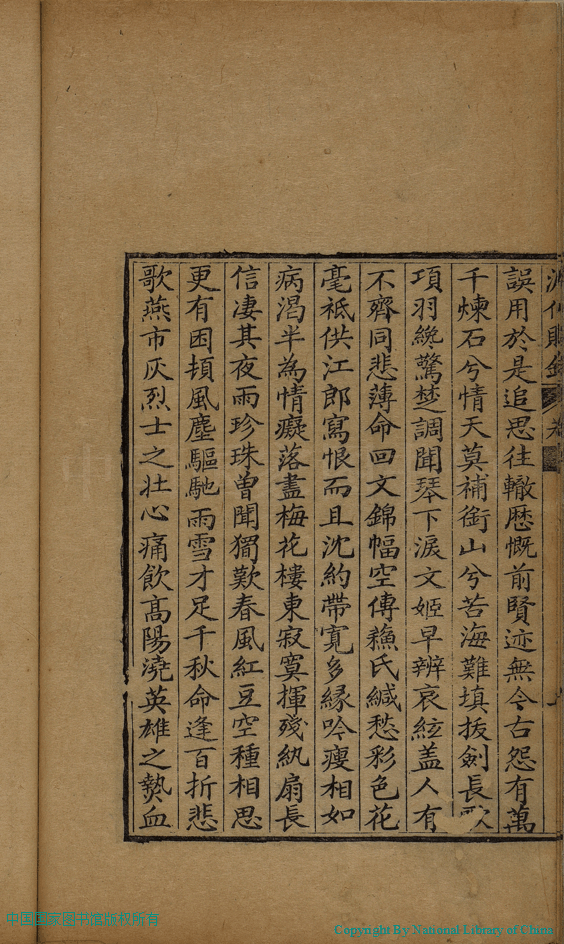 誤用於是追思往轍歷慨前賢迹無今古怨有萬
千煉石兮情天莫補銜山兮苦海難填拔劍長歌
項羽纔驚楚調聞琴下淚文姬早辨哀絃蓋人有
不齊同悲薄命回文錦幅空傳蘓氏緘愁彩色花
毫祗供江郎寫恨而且沈約帶寬多緣吟瘦相如
病渴半為情癡落盡梅花樓東寂寞揮殘紈扇長
信凄其夜雨珍珠曾聞獨歎春風紅豆空種相思
更有困頓風塵驅馳雨雪才足千秋命逢百折悲
歌燕市灰烈士之壯心痛飲高陽澆英雄之熱血
中国国家图书馆版权所有
Copyright By National Library of China